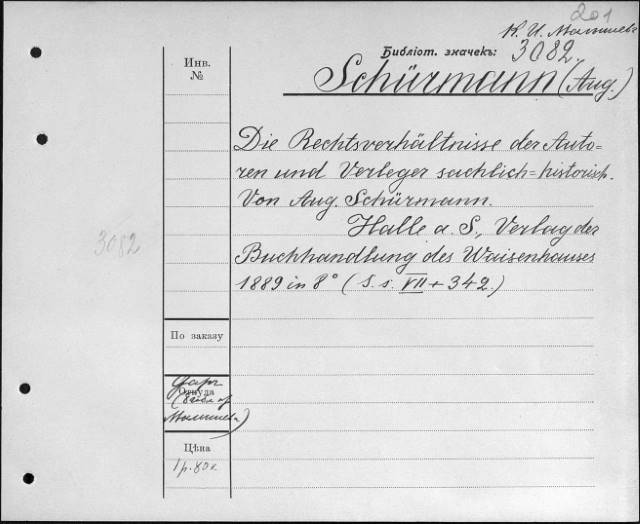 201
К. И. Малышева
Библіот. значекъ: 3082.
Schürmann (Aug.)
Инв.
№
Die Rechtsverhältnisse der Auto=
ren und Verleger sachlich=historisch.
Von Aug. Schürmann.
Halle a. S., Verlag der
Buchhandlung des Waisenhauses
1889 in 8° (S. s. VII + 342.)
3082
По заказу
Откуда
Малышева)
Цѣна
1 р. 80 к.